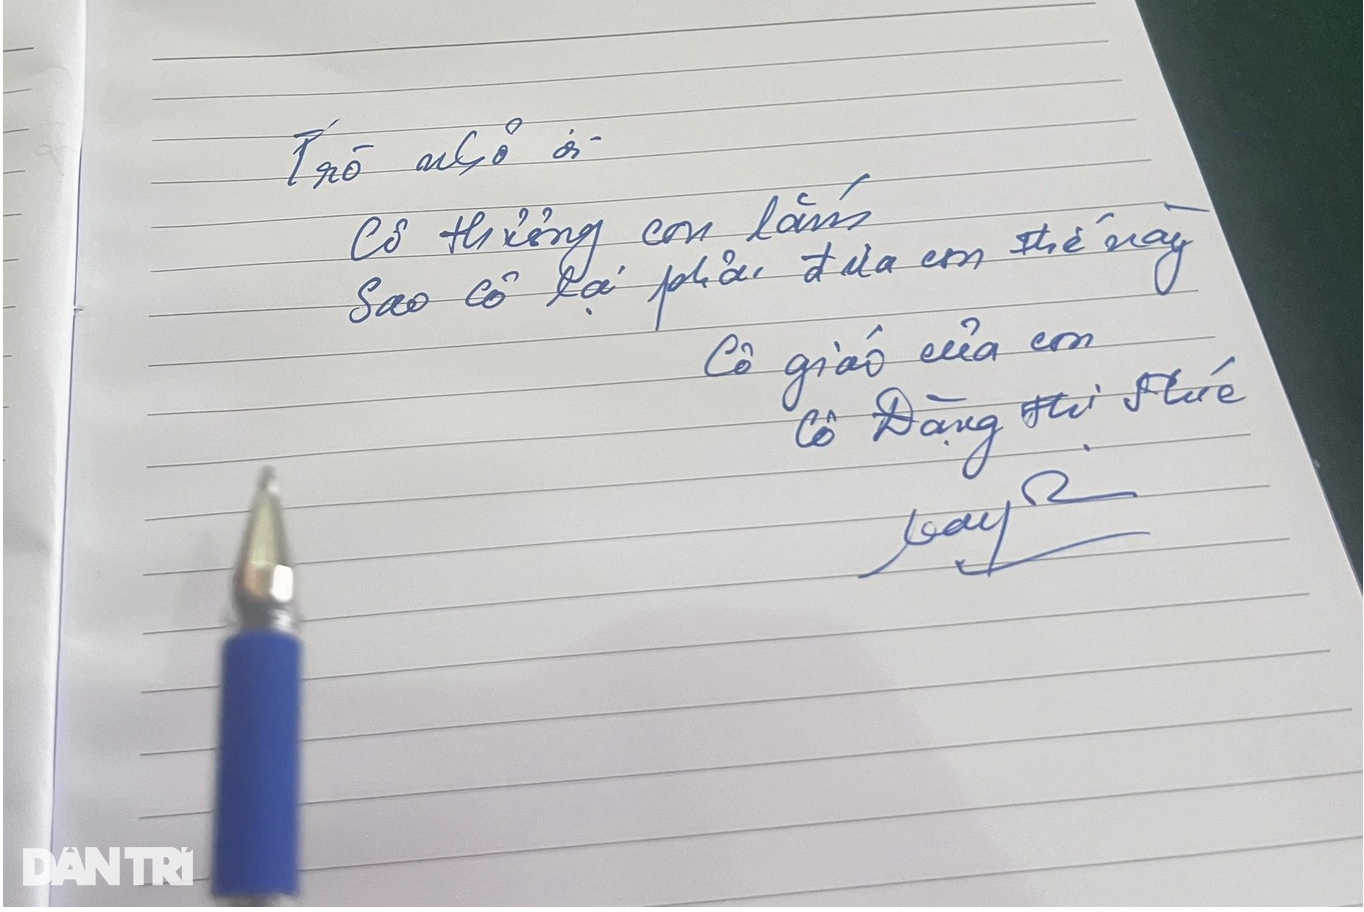 Trò nhỏ ơi
Cô thương con lắm
Sao cô lại phải đưa con thế này
Cô giáo của con
Cô Đặng thị
DÂN TRÍ